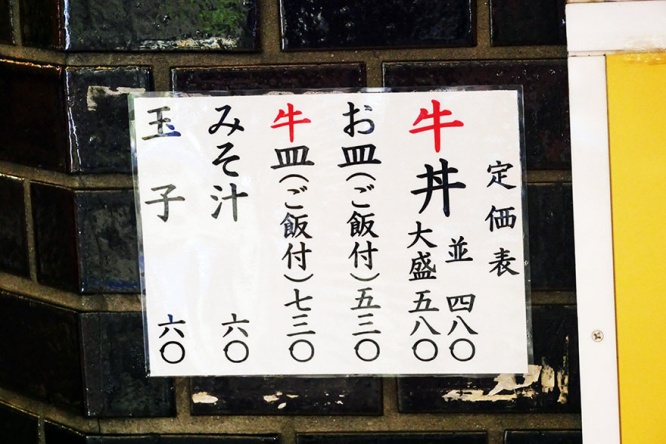 定価表
牛丼 並 四八〇
大盛 五八〇
お皿(ご飯付)五三〇
牛皿(ご飯付)七三〇
みそ汁 六〇
玉子 六〇